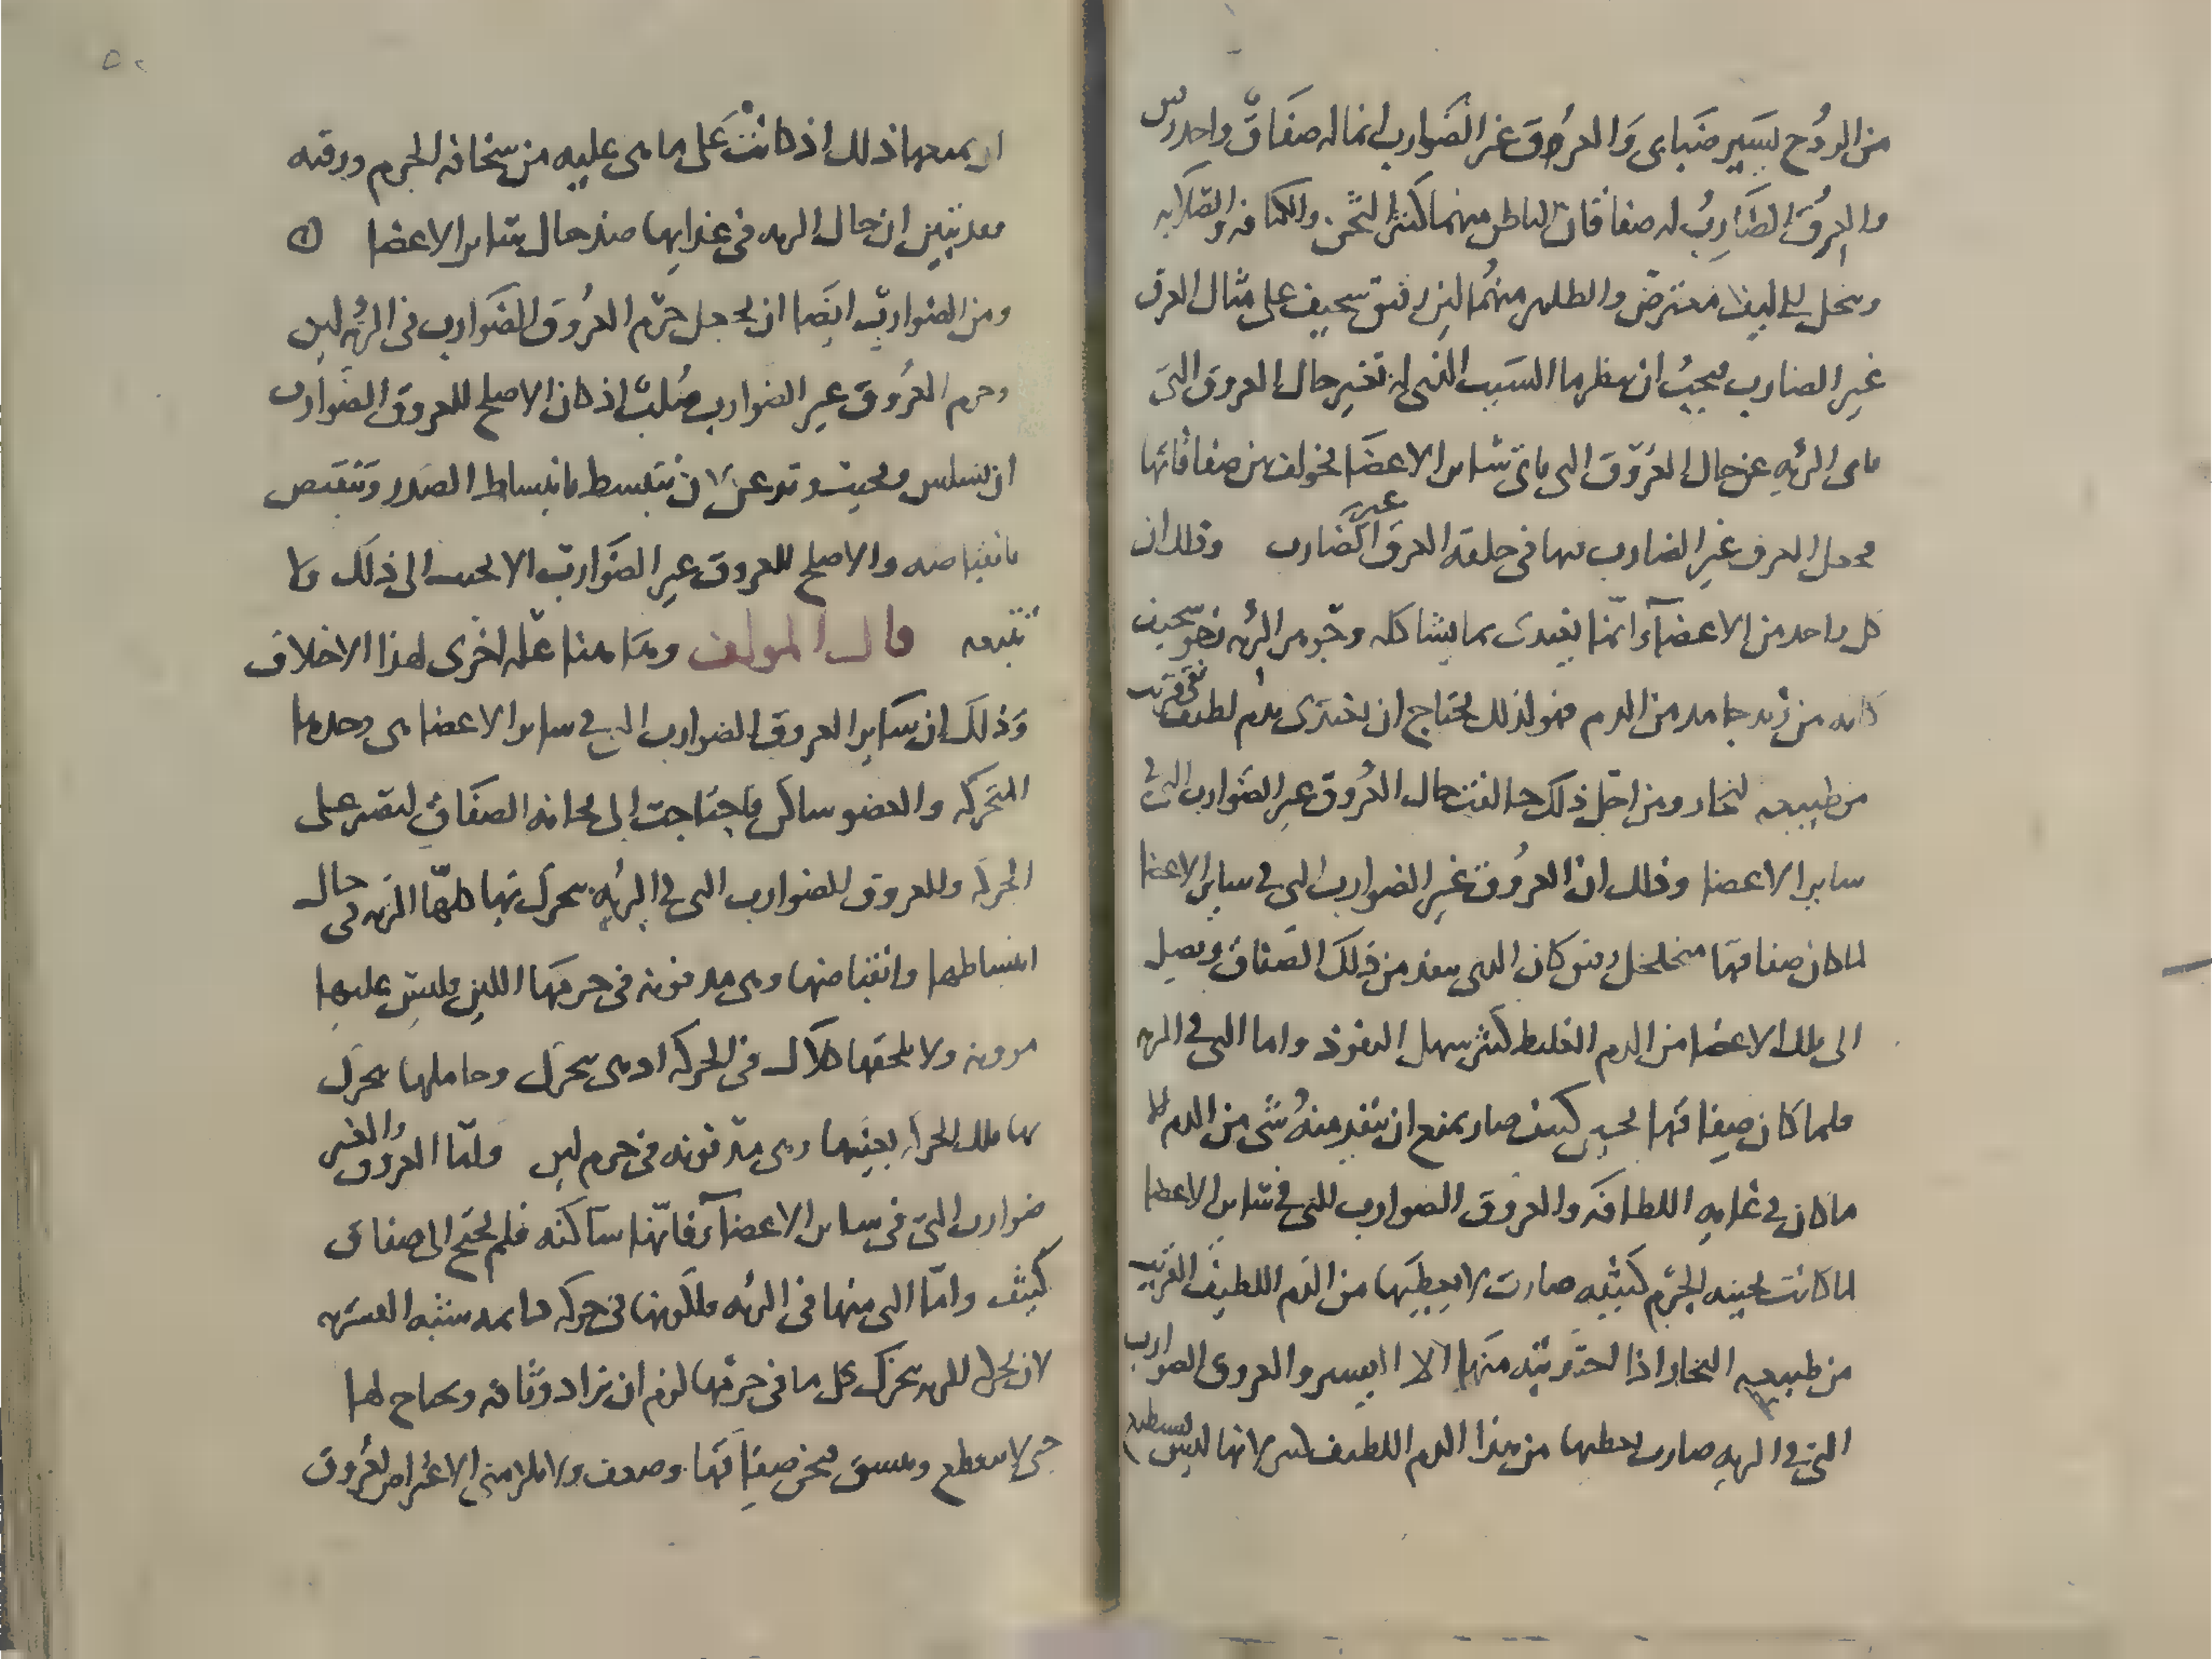 من الروح يسير ضبابى والعروق غير الضوارب انما له صفاق واحد رقيق
والعروق الضارب له صفاقان الباطن منهما كثير الثخن والكثافه والصلابه
وينحل الى ليف معترض والظاهر منهما لين رقيق سخيف على مثال العرق
غير الضارب فيجب ان ينظر ما السبب الذى له تغير حال العروق التى
تاتى الرئه عن حال العروق التى تاتى ساير الاعضا فخولف بين صفاقاتها
فجعل العرق غير الضارب فيها فى خلقه العرق الضارب وذلك ان
كل واحد من الاعضآء انما يغتدى بما يشاكله وجوهر الرئه نحو سخيف
كانه من زبد جامد من الدم فهو لذلك يحتاج ان يغتدى بدم لطيف نقى قريب
من طبيعه البخار ومن اجل ذلك خالفت حال العروق غير الضوارب التى فى
ساير الاعضا وذلك ان العروق غير الضوارب التى فى ساير الاعضا
لما كان صفاقها متخلخل رقيق كان الذى ينفد من ذلك الصفاق ويصل
الى تلك الاعضا من الدم الغليظ كثير سهل النفوذ واما التى فى الريه
فلما كان صفاقها ثخين كثيف صار يمنع ان ينفد منه شى من الدم الا
ما كان فى غايه اللطافه والعروق الضوارب التى فى ساير الاعضا
لما كانت ثخينه الجرم كثيفه صارت لا يعطيها من الدم اللطيف القريب
من طبيعه البخار اذا الحدر بته منها الا اليسير والعروق الضوارب
التى فى الريه صارت يعطيها من هذا الدم اللطيف لانها ليس
ان يمنعها ذلك اذ كانت على ما هى عليه من سخافه الجرم ورقته
فقد تبين ان حال الريه فى غذايها ضد حال ساير الاعضا
ومن الصواب ايضا ان يجعل جرم العروق الضوارب فى الرئه لين
وجرم العروق غير الضوارب صلب اذ كان الاصلح للعروق الضوارب
ان تسلس وتجيب وتدعن لان تنبسط بانبساط الصدر وتنقبص
بانقباضه والاصلح للعروق غير الضوارب الا تجيب الى ذلك ولا
تتبعه قال المولف وها هنا عله اخرى لهذا الاختلاف
وذلك ان ساير العروق الضوارب التى فى ساير الاعضا هى وحدها
المتحركه والعضو ساكن فاحتاجت الى ثخانه الصفاق لتقدر على
الحركه والعروق الضوارب التى فى الرئه يتحرك بها كلها الريه فى حال
انبساطها وانقباضها وهى مدفونه فى جرمها اللين فليس عليها
موونه ولا يلحقها كلال فى الحركه اذ هى تتحرك وحاملها يتحرك
بها تلك الحركه بعينها وهى مدفونه فى جرم لين ولما العروق الغير
ضوارب التى فى ساير الاعضآء فانها ساكنه فلم تحتج الى صفاق
كثيف واما التى منها فى الرئه فلكونها فى حركه دايمه
لان تحرك الريه يتحرك كل ما فى جرمها لزم ان تزاد وثاقه ويحتاج لها
حتى لا تنقطع وتنشق فثخن صفاقها وضعف ولا الاعراض لعروق